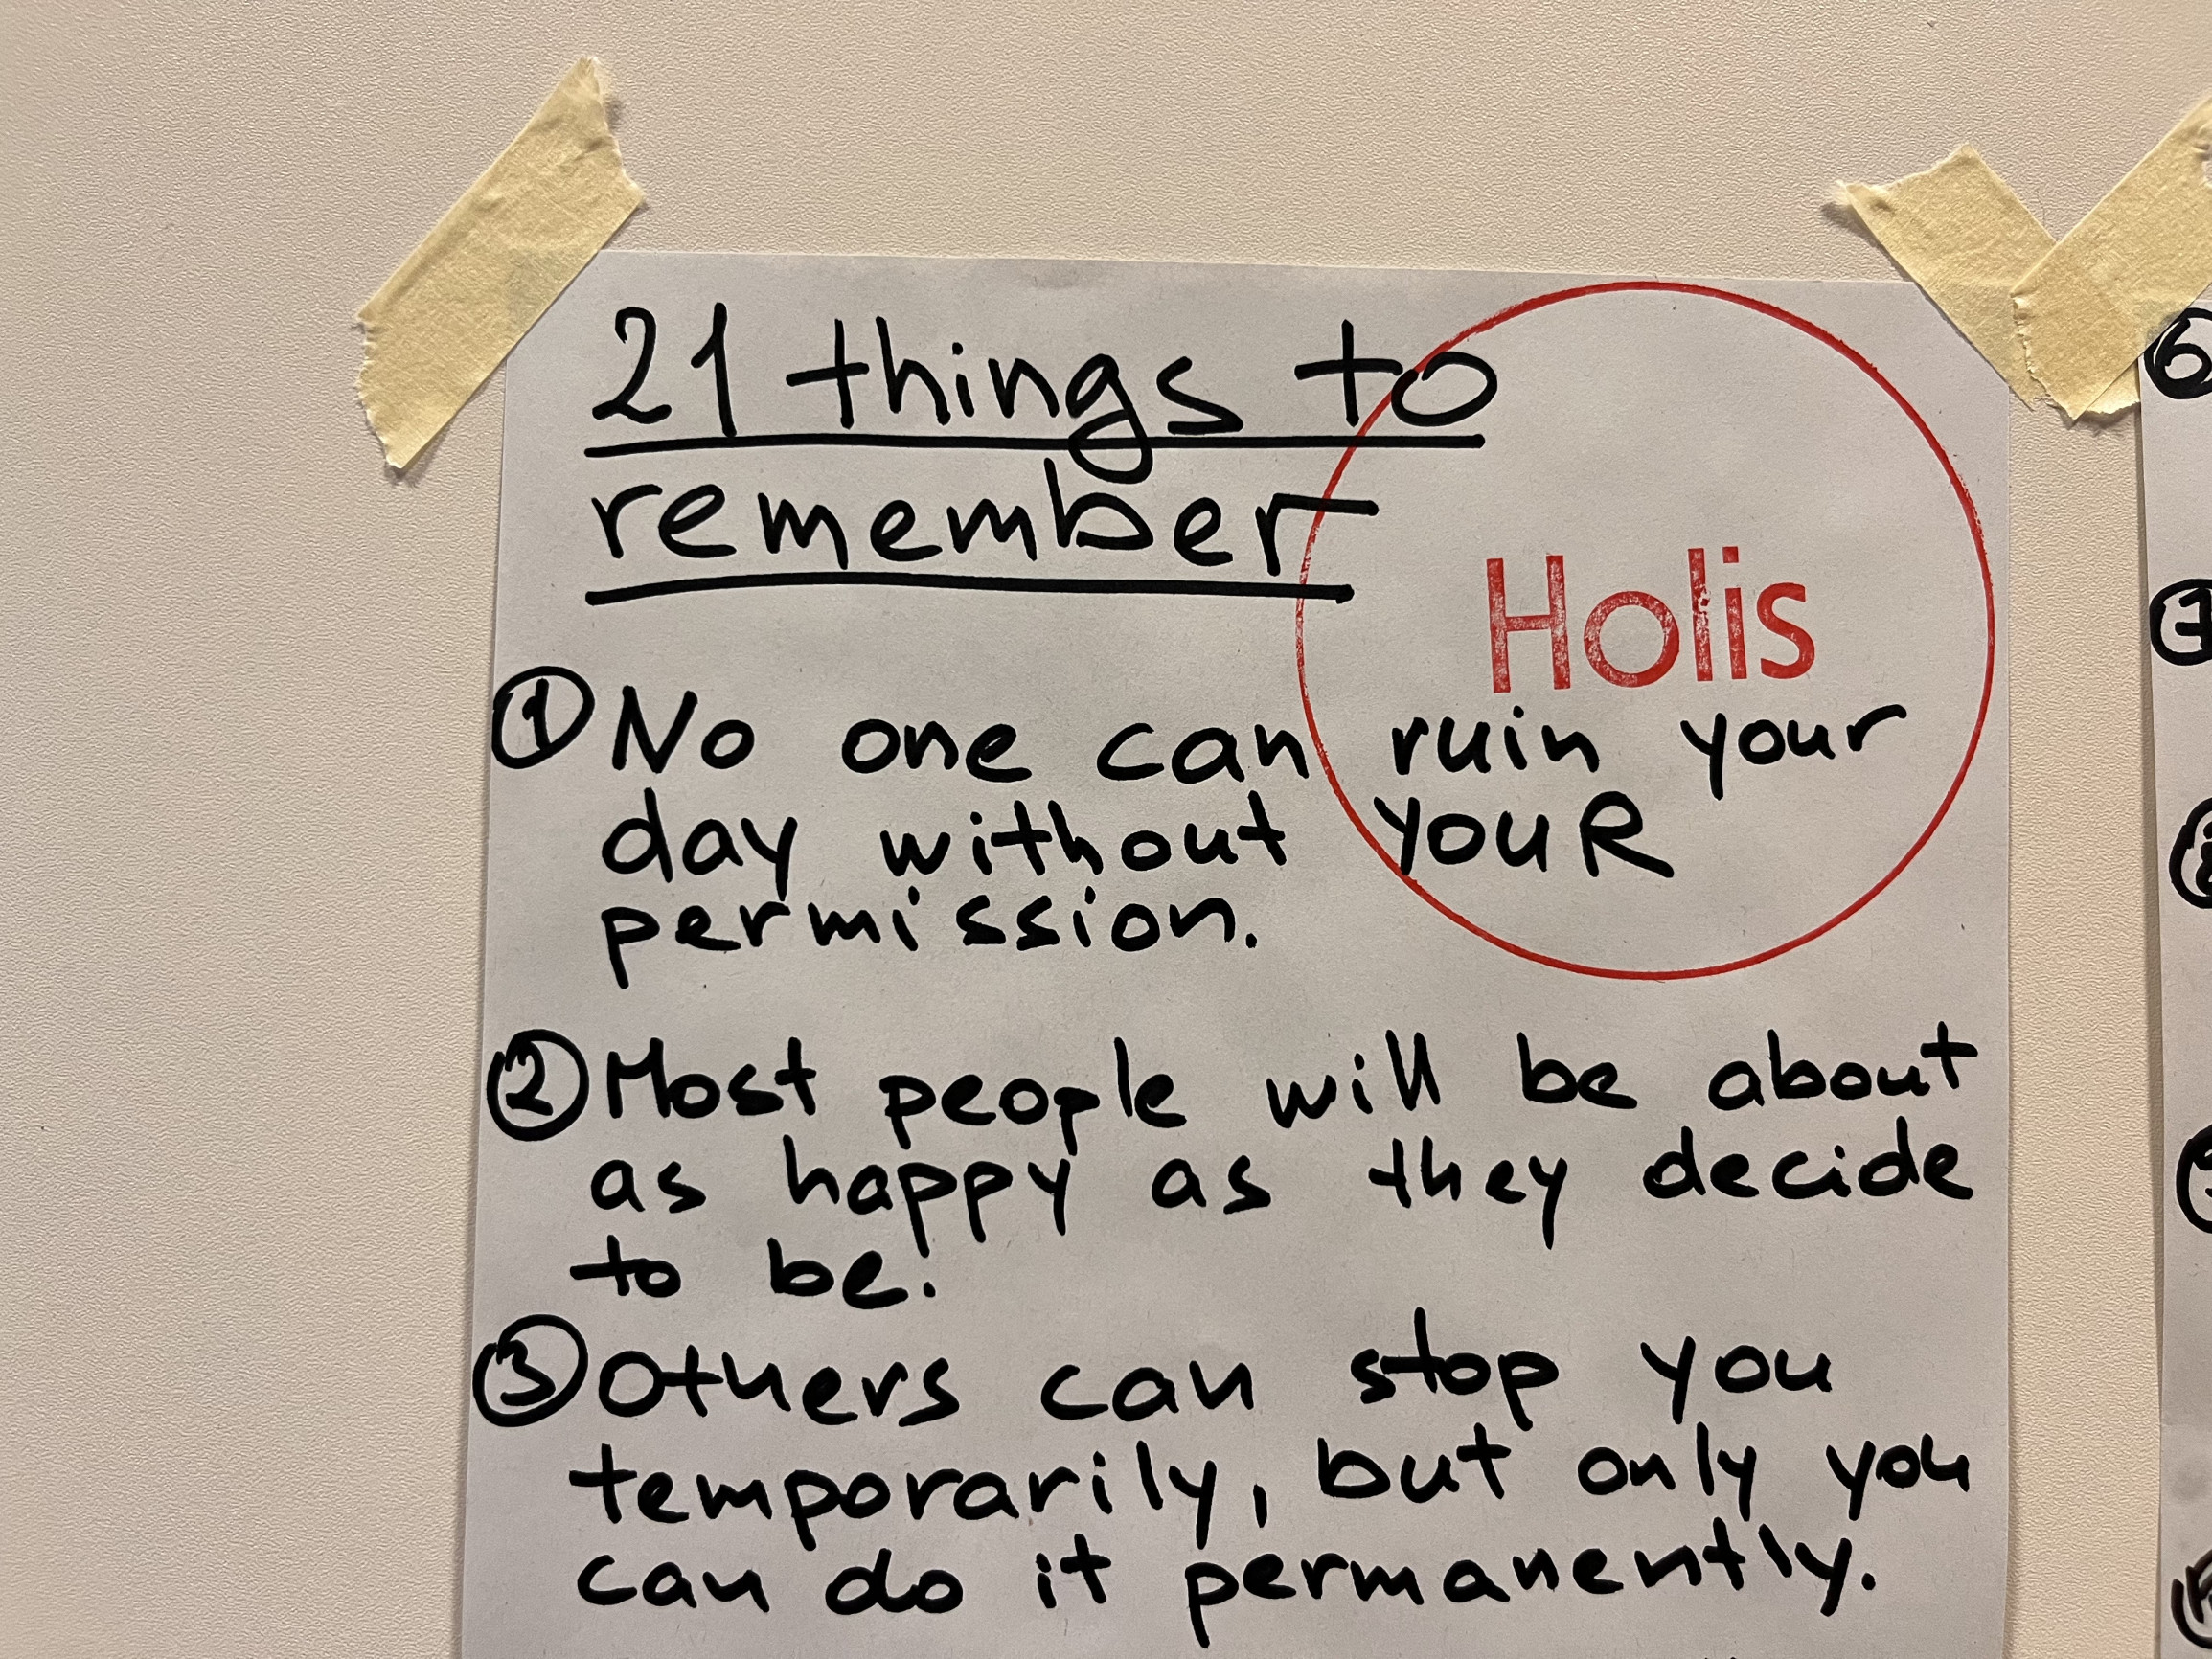 21 things to
remember
Holis
1 No one can ruin your
day without YOUR
permission.
2 Most people will be about
as happy as they decide
to be.
3 Others can stop you
temporarily, but only you
can do it permanently.
6
7